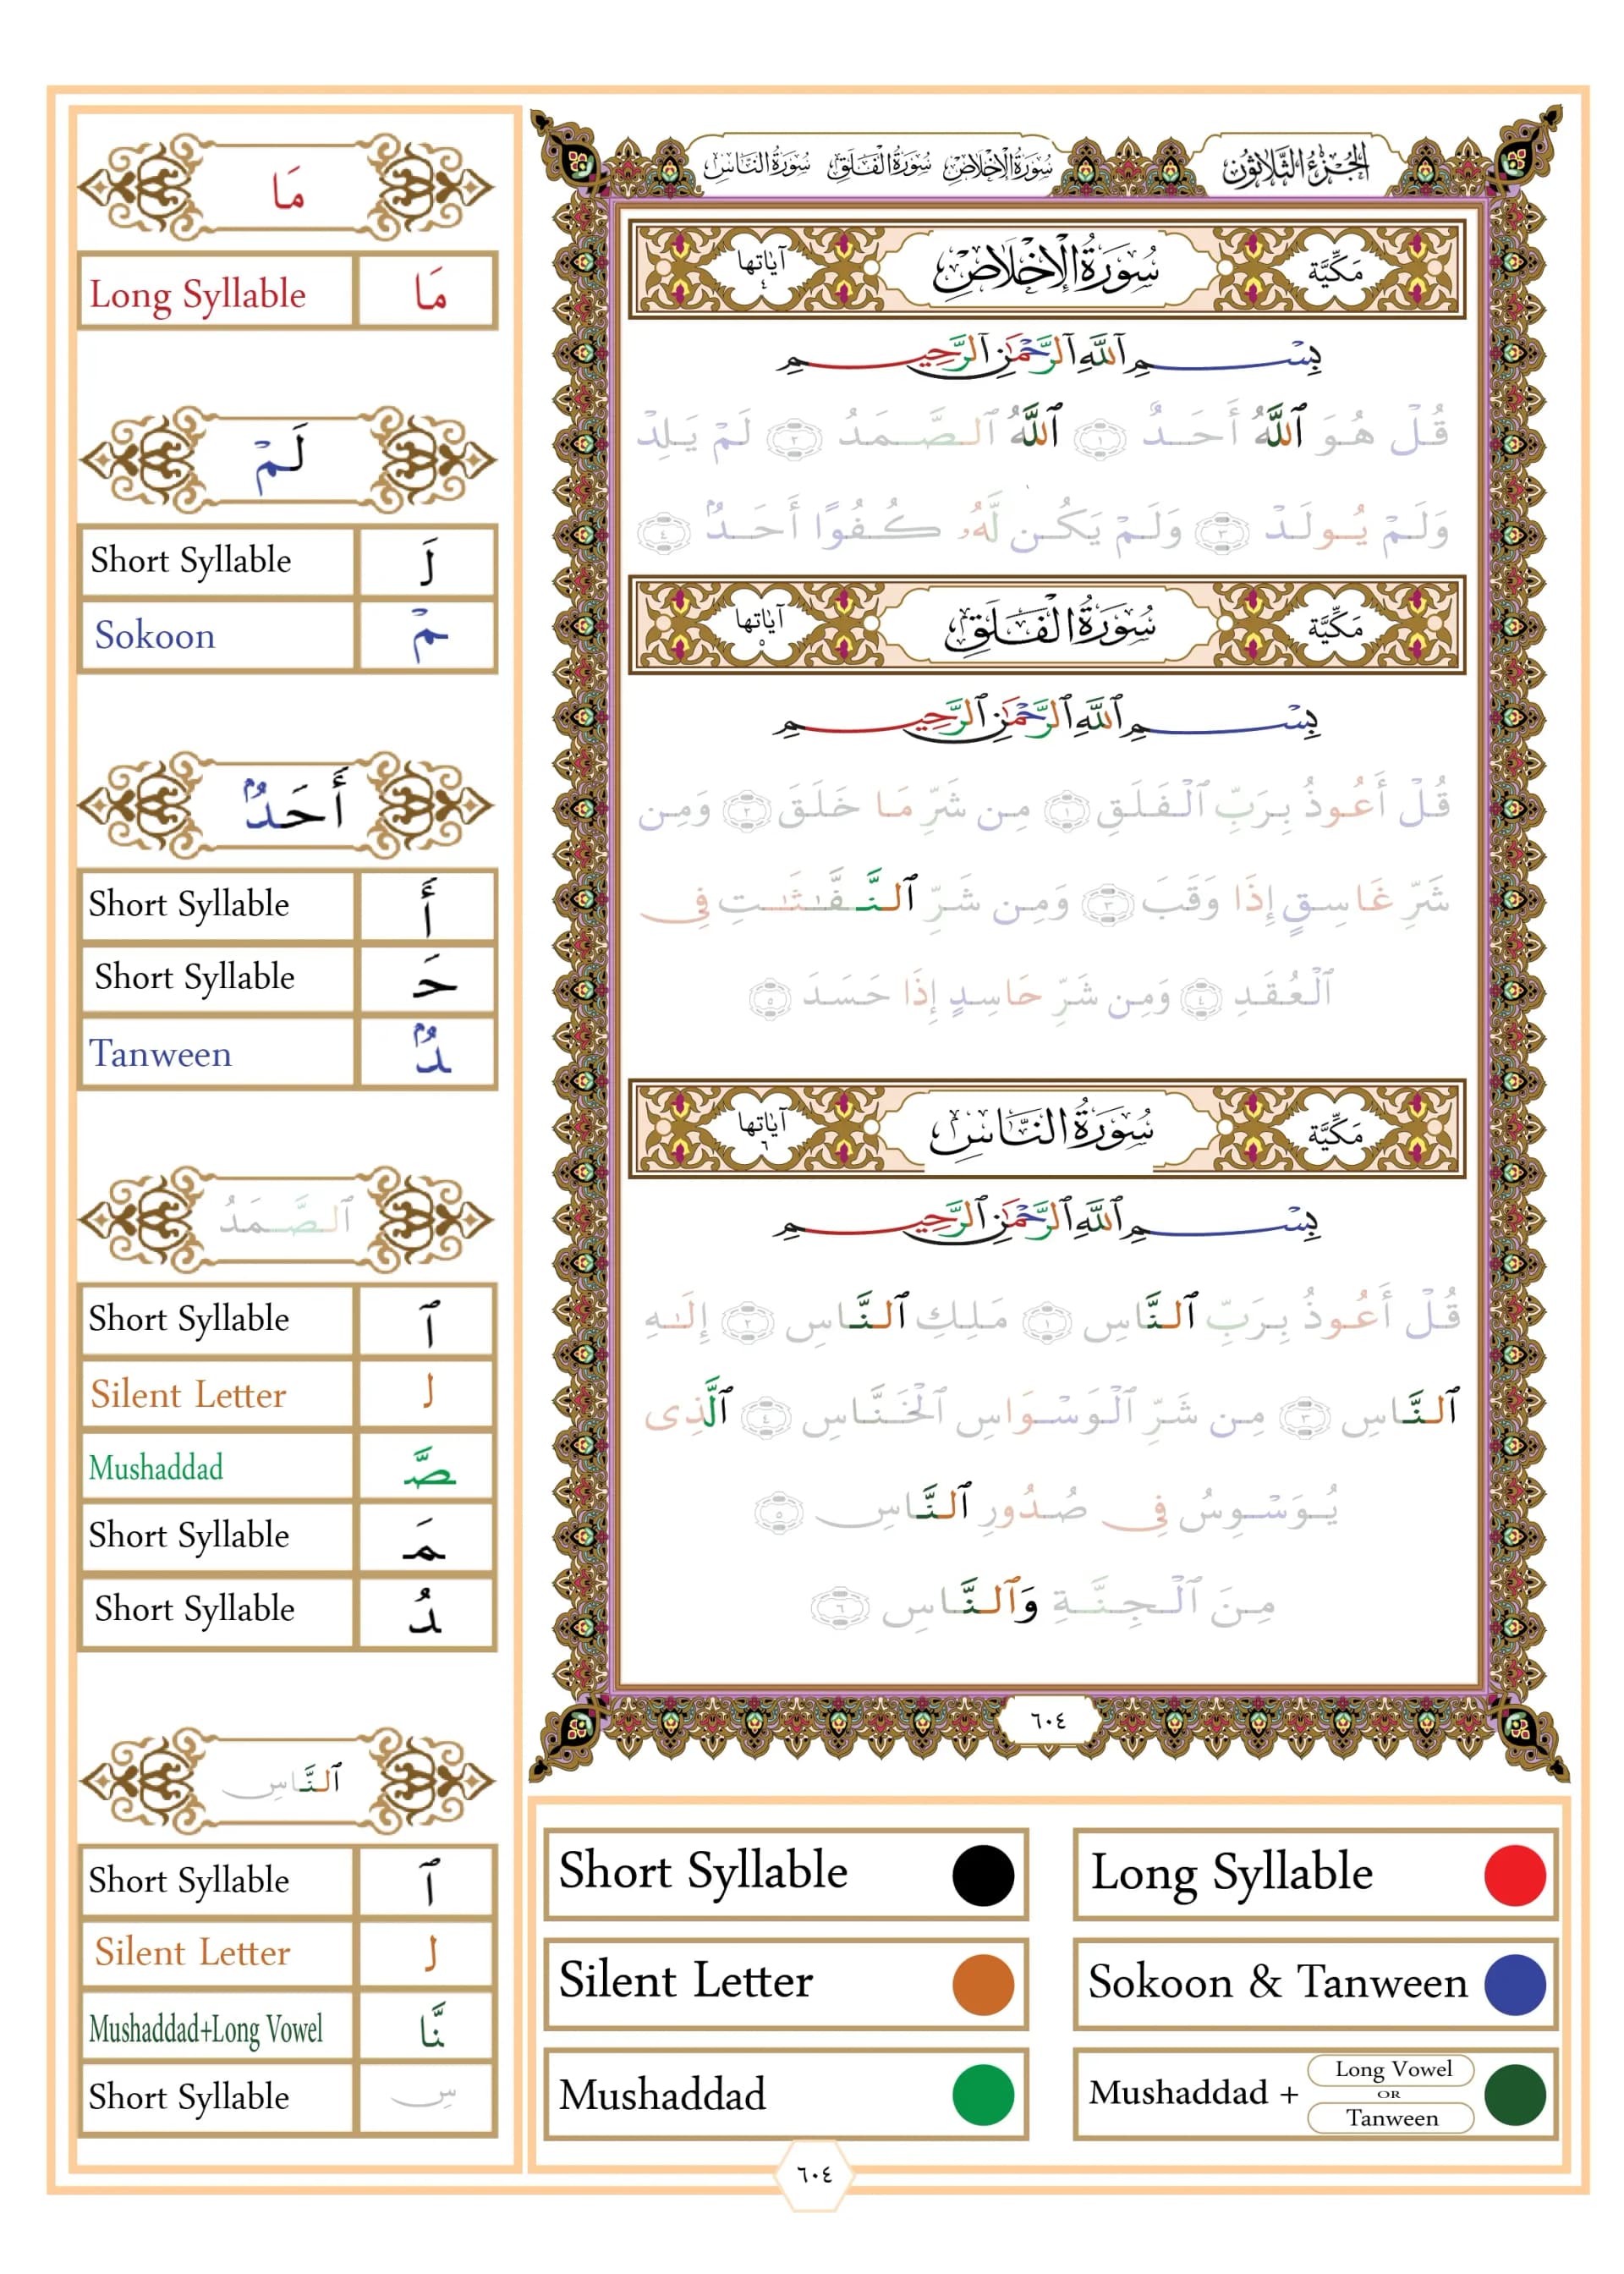 الجزء الثلاثون
سورة الإخلاص سورة الفلق سورة الناس
مَكِّيَّة
سُورَةُ الْإِخْلَاصِ
آياتها ٤
بِسْمِ ٱللَّهِ ٱلرَّحْمَٰنِ ٱلرَّحِيمِ
قُلْ هُوَ ٱللَّهُ أَحَدٌ ١ ٱللَّهُ ٱلصَّمَدُ ٢ لَمْ يَلِدْ
وَلَمْ يُولَدْ ٣ وَلَمْ يَكُن لَّهُۥ كُفُوًا أَحَدٌۢ ٤
مَكِّيَّة
سُورَةُ الْفَلَقِ
آياتها ٥
بِسْمِ ٱللَّهِ ٱلرَّحْمَٰنِ ٱلرَّحِيمِ
قُلْ أَعُوذُ بِرَبِّ ٱلْفَلَقِ ١ مِن شَرِّ مَا خَلَقَ ٢ وَمِن
شَرِّ غَاسِقٍ إِذَا وَقَبَ ٣ وَمِن شَرِّ ٱلنَّفَّٰثَٰتِ فِى
ٱلْعُقَدِ ٤ وَمِن شَرِّ حَاسِدٍ إِذَا حَسَدَ ٥
مَكِّيَّة
سُورَةُ النَّاسِ
آياتها ٦
بِسْمِ ٱللَّهِ ٱلرَّحْمَٰنِ ٱلرَّحِيمِ
قُلْ أَعُوذُ بِرَبِّ ٱلنَّاسِ ١ مَلِكِ ٱلنَّاسِ ٢ إِلَٰهِ
ٱلنَّاسِ ٣ مِن شَرِّ ٱلْوَسْوَاسِ ٱلْخَنَّاسِ ٤ ٱلَّذِى
يُوَسْوِسُ فِى صُدُورِ ٱلنَّاسِ ٥
مِنَ ٱلْجِنَّةِ وَٱلنَّاسِ ٦
٦٠٤
مَا
Long Syllable مَا
لَمْ
Short Syllable لَ
Sokoon مْ
أَحَدٌۢ
Short Syllable أَ
Short Syllable حَ
Tanween دٌۢ
ٱلصَّمَدُ
Short Syllable ٱ
Silent Letter ل
Mushaddad صَّ
Short Syllable مَ
Short Syllable دُ
ٱلنَّاسِ
Short Syllable ٱ
Silent Letter ل
Mushaddad+Long Vowel نَّا
Short Syllable سِ
Short Syllable
Long Syllable
Silent Letter
Sokoon & Tanween
Mushaddad
Mushaddad + Long Vowel OR Tanween
٦٠٤